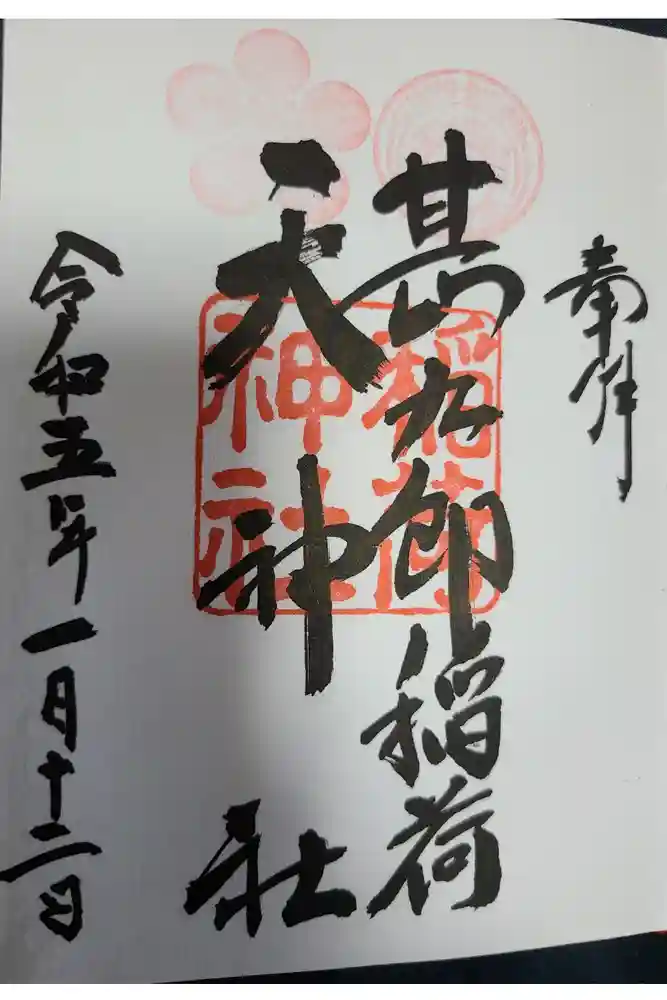 奉拝
甚九郎稲荷
天神社
令和五年一月十二日
稲荷
神社